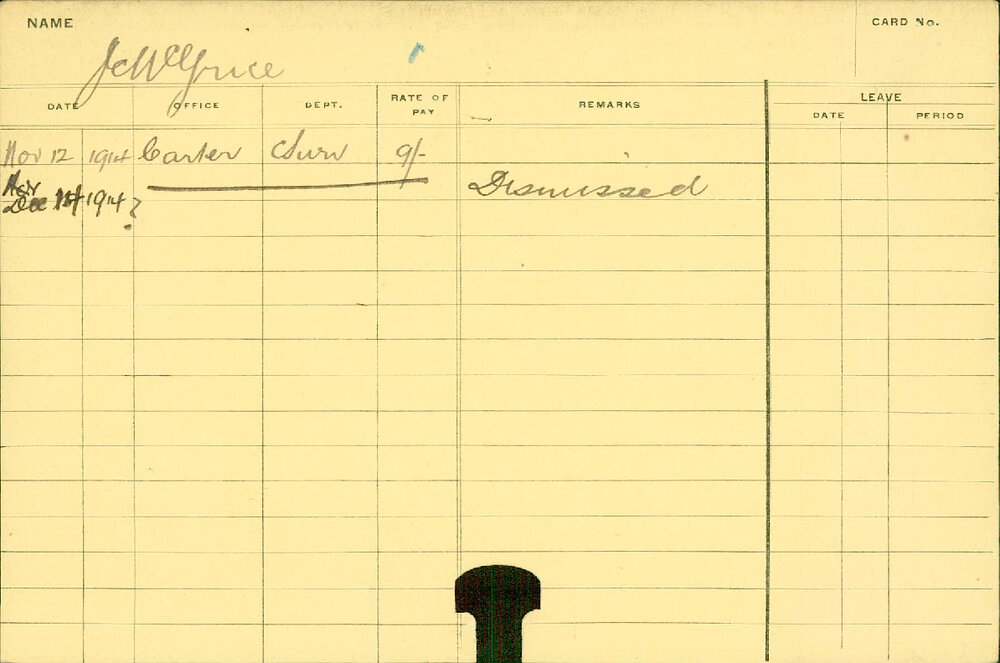 NAME
CARD No.
DATE OFFICE DEPT. RATE OF PAY REMARKS LEAVE
DATE PERIOD
Nov 12 1914 Carter 9/-
Dec 1914 ? Dismissed